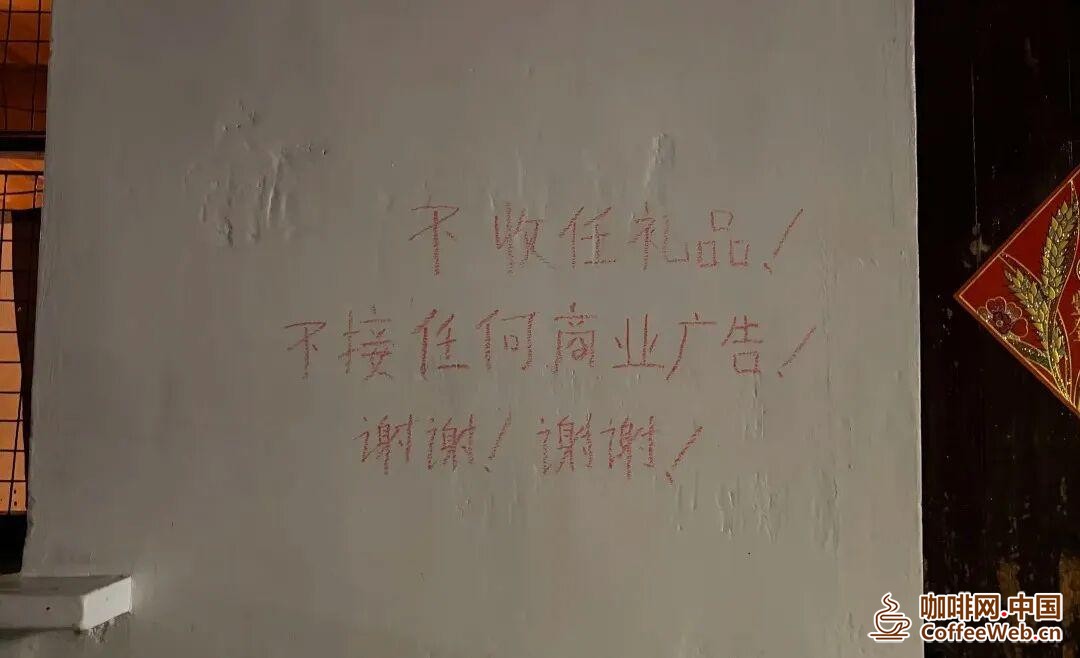 不收任礼品！
不接任何商业广告！
谢谢！谢谢！
咖啡网.中国
CoffeeWeb.cn